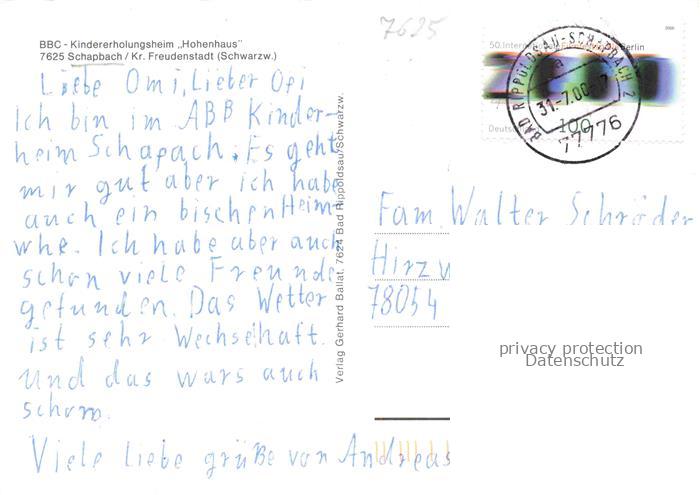 7625
BBC - Kindererholungsheim „Hohenhaus"
7625 Schapbach / Kr. Freudenstadt (Schwarzw.)
Liebe Omi, Lieber Opi
Ich bin im ABB Kinder-
heim Schapach. Es geht
mir gut aber ich habe
auch ein bischen Heim-
whe. Ich habe aber auch
schon viele Freunde
gefunden. Das Wetter
ist sehr Wechselhaft.
Und das wars auch
schom.
Viele Liebe grüße von Andreas
Verlag Gerhard Ballat, 7624 Bad Rippoldsau/Schwarzw.
50. Internationale Berlin
Deutsch
100
BAD RIPPOLDSAU-SCHAPBACH 2
31.-7.00.-7
77776
Fam. Walter Schröder
Hirzw
78054
privacy protection
Datenschutz